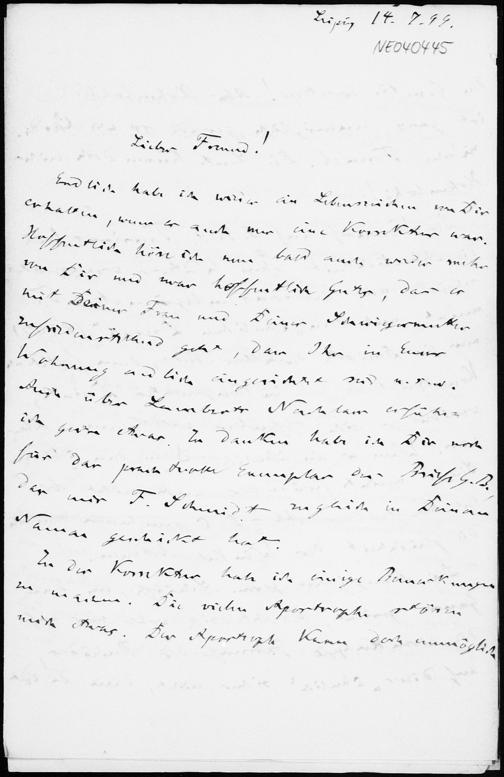 Leipzig 14. 7. 99.
NE040445
Lieber Freund!
Endlich habe ich wieder ein Lebenszeichen von Dir
erhalten, wenn es auch nur eine Korrektur war.
Hoffentlich höre ich nun bald auch wieder mehr
von Dir und zwar hoffentlich Gutes, dass es
mit Deiner Frau und Deiner Schwiegermutter
zufriedenstellend geht, dass Ihr in Eurer
Wohnung endlich eingerichtet seid u.s.w.
Auch über Lamberts Nachlass erführe
ich gerne etwas. Zu danken habe ich Dir noch
für das prachtvolle Exemplar des Briefs G. B.
das mir F. Schmidt zugleich in Deinem
Namen geschickt hat.
In der Korrektur habe ich einige Bemerkungen
zu machen. Die vielen Apostrophe stören
mich etwas. Der Apostroph kann doch unmöglich